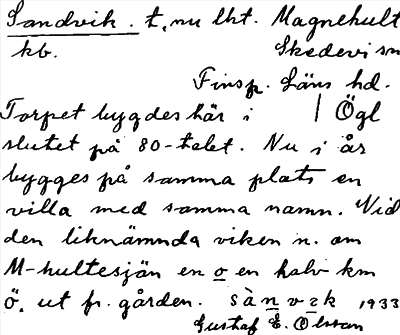 Sandvik. t, nu lht. Magnehult
kb. Skedevi sn
Finsp. Läns hd.
Torpet bygdes här i | Ögl
slutet på 80-talet. Nu i år
bygges på samma plats en
villa med samma namn. Vid
den liknämnda viken n. om
M-hultesjön en o en halv km
ö. ut fr. gården. sànvɪk 1933
Gustaf E. Olsson